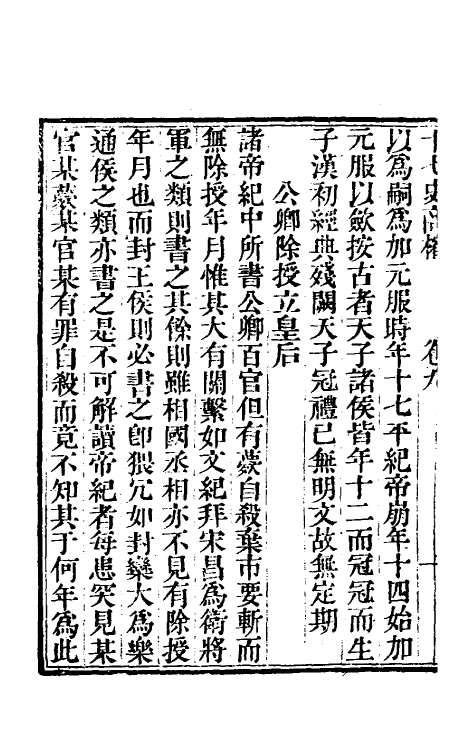 十七史商榷　卷九　十
以為嗣為加元服時年十七平紀帝崩年十四始加
元服以歛按古者天子諸侯皆年十二而冠冠而生
子漢初經典殘闕天子冠禮已無明文故無定期
公卿除授立皇后
諸帝紀中所書公卿百官但有薨自殺棄市要斬而
無除授年月惟其大有關繫如文紀拜宋昌為衛將
軍之類則書之其餘則雖相國丞相亦不見有除授
年月也而封王侯則必書之卽猥冗如封欒大為樂
通侯之類亦書之是不可解讀帝紀者每患突見某
官某薨某官某有罪自殺而竟不知其于何年為此